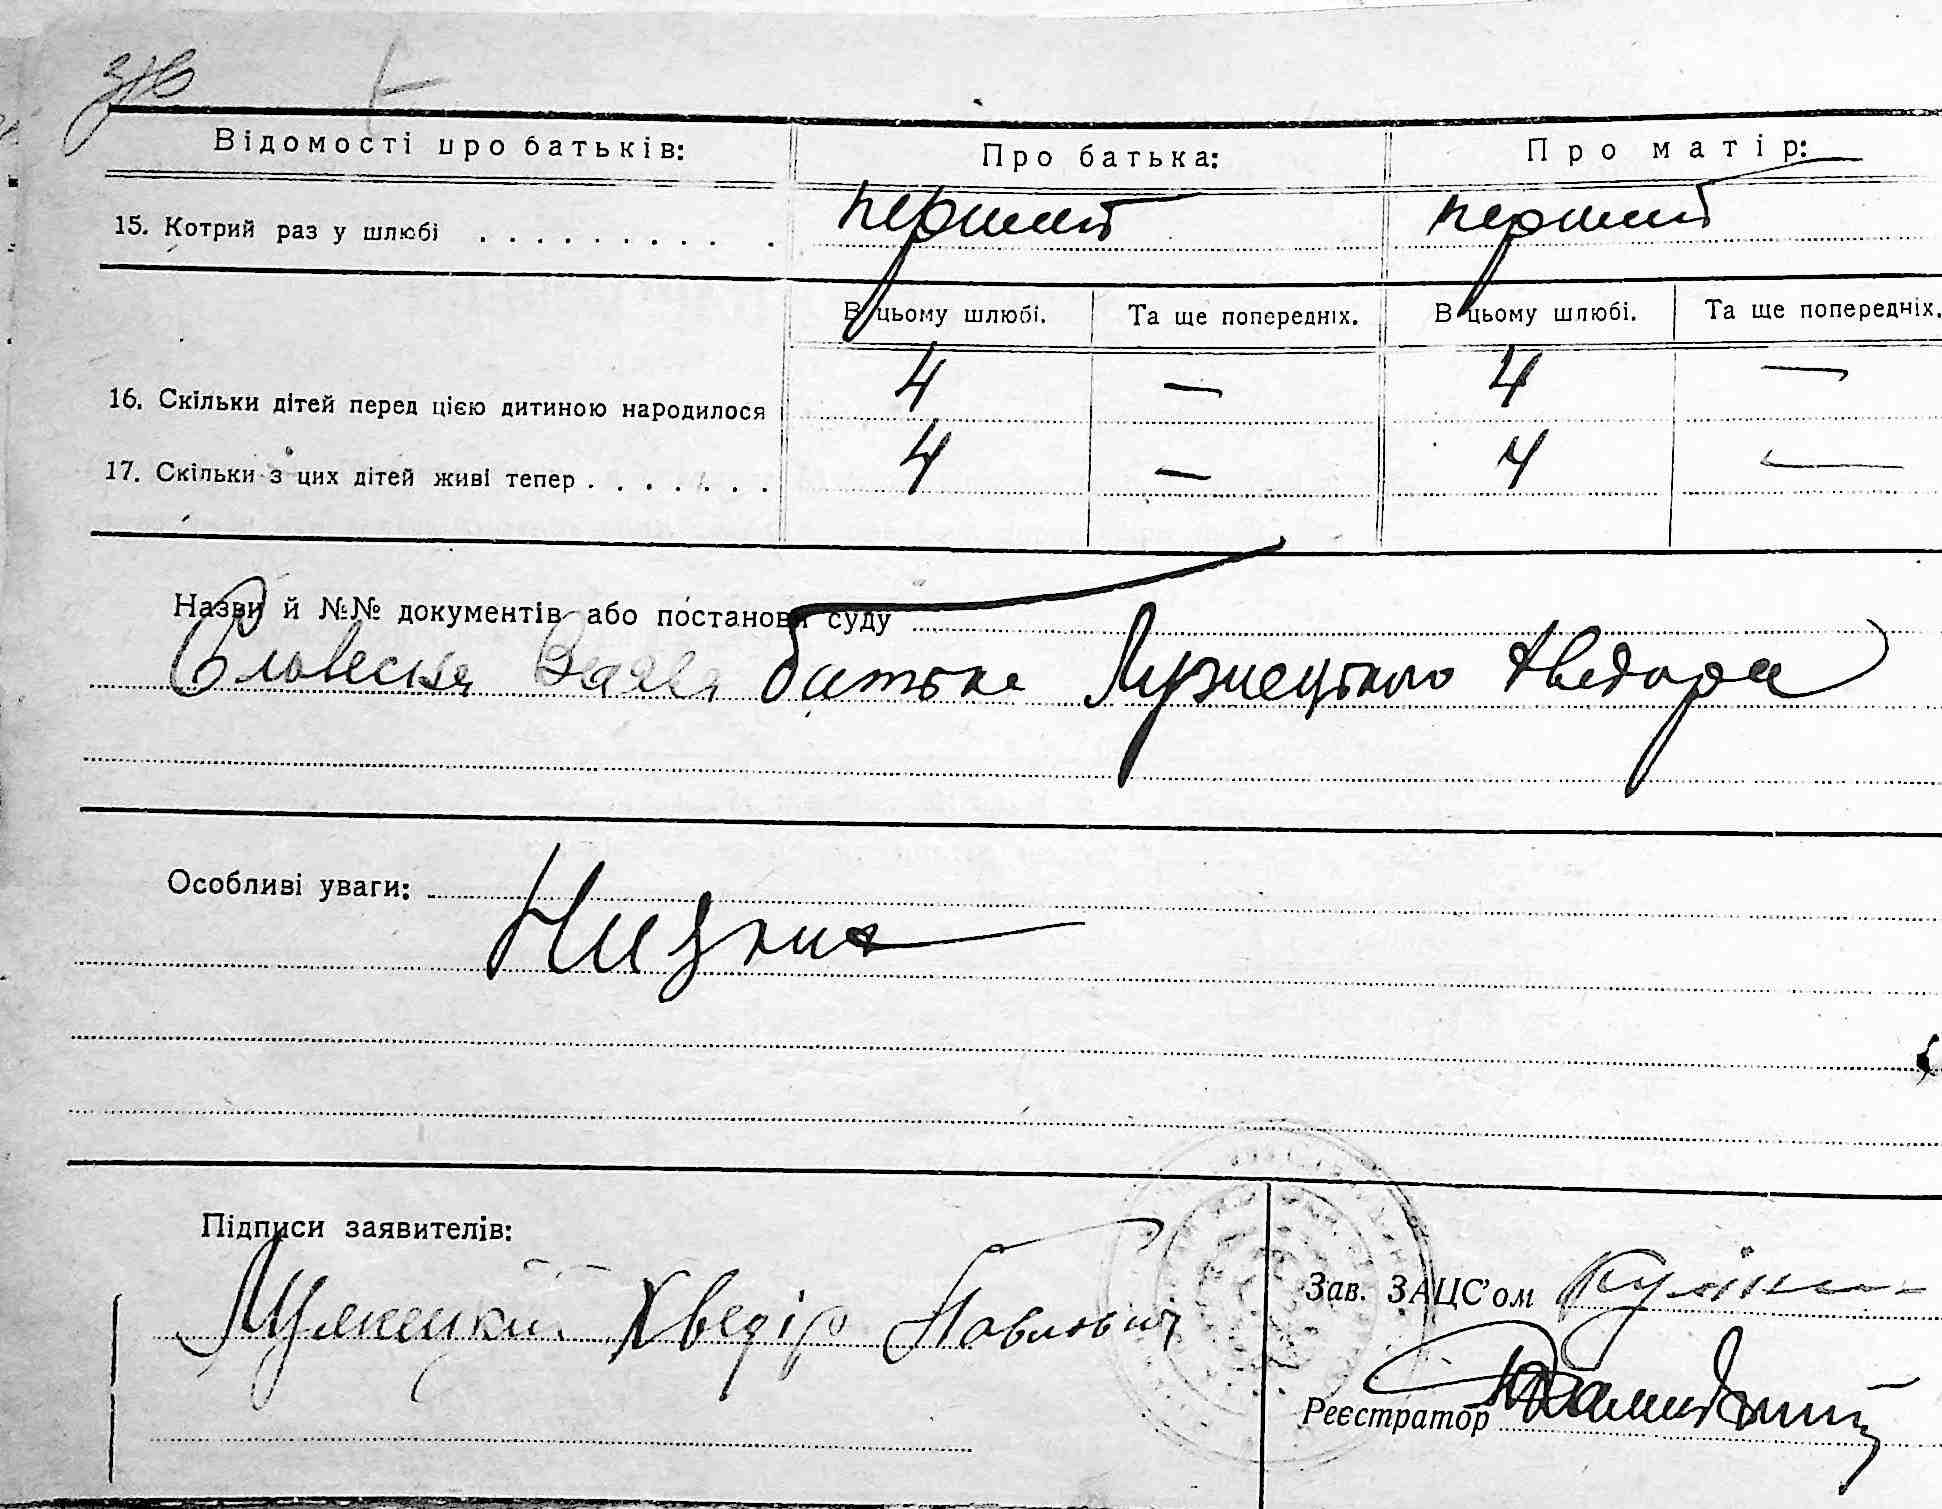 Відомості про батьків: Про батька: Про матір:
15. Котрий раз у шлюбі . . . . . . . . . . перший перший
В цьому шлюбі. Та ще попередніх. В цьому шлюбі. Та ще попередніх.
16. Скільки дітей перед цією дитиною народилося 4 — 4 —
17. Скільки з цих дітей живі тепер . . . . . . . 4 — 4 —
Назви й №№ документів або постанови суду
Словесна Заява батька Лужецького Хведора
Особливі уваги:
Підписи заявителів:
Лужецький Хведір Павлович
Зав. ЗАЦС'ом
Реєстратор